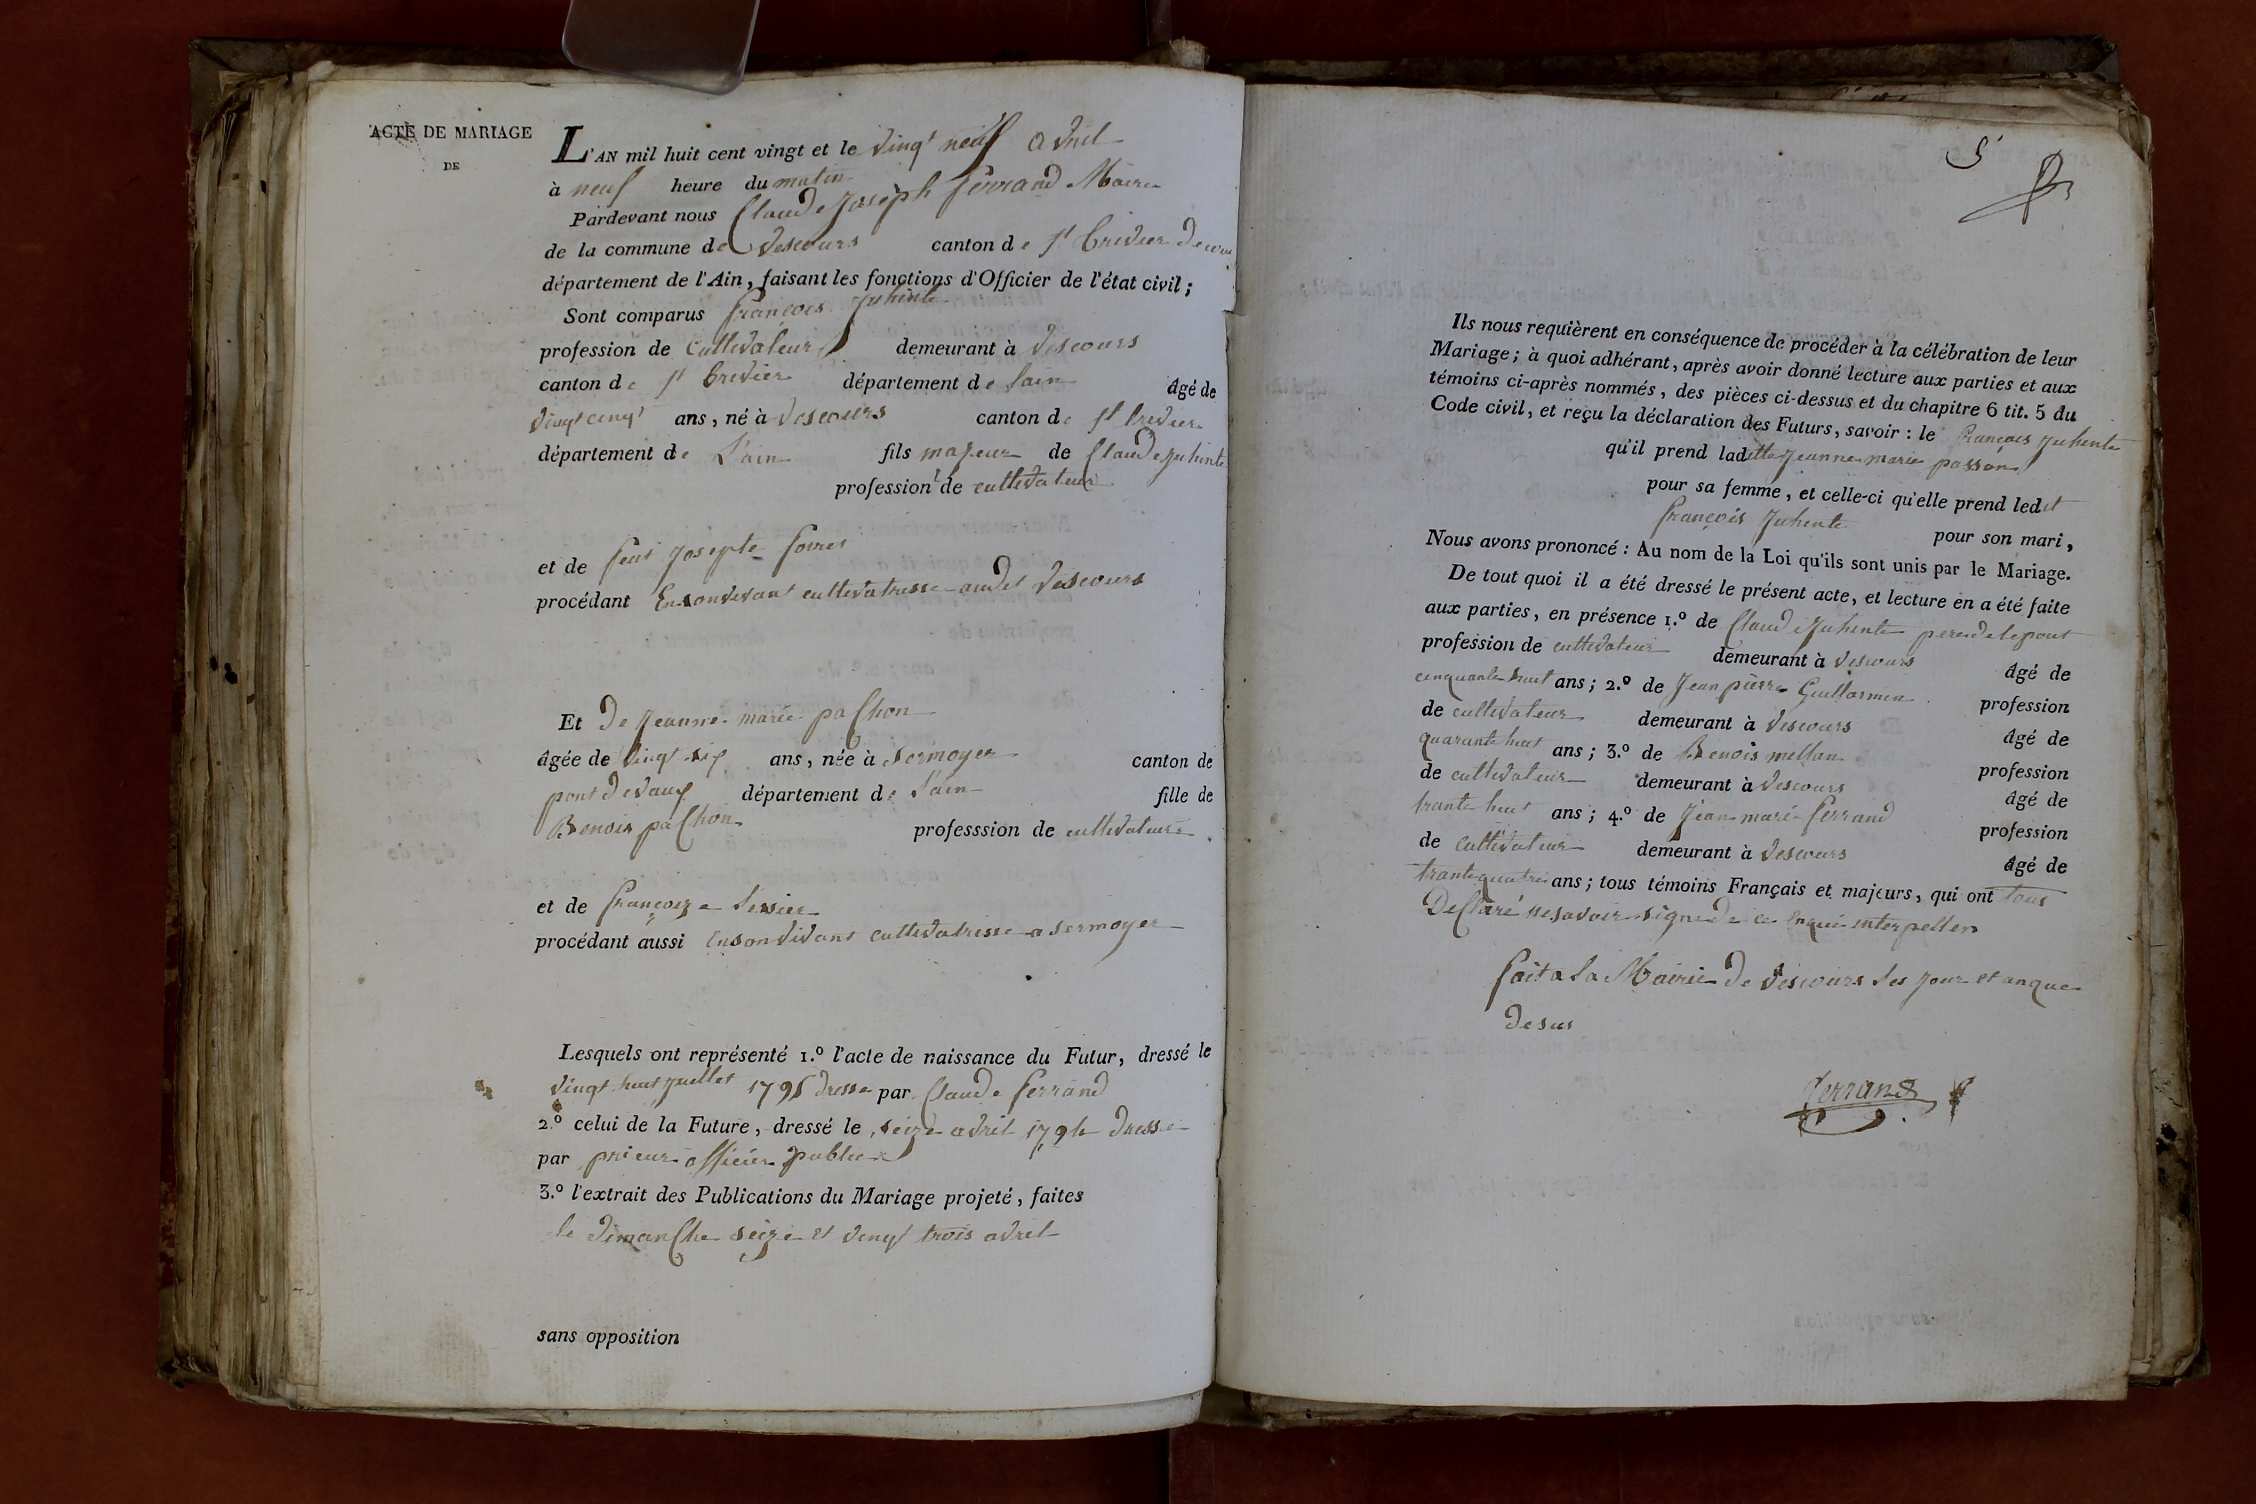 ACTE DE MARIAGE
DE
L'AN mil huit cent vingt et le vingt neuf avril
à neuf heure du matin
Pardevant nous Claude Joseph ferrand Maire
de la commune de Vescours canton de st trivier de cour
département de l'Ain, faisant les fonctions d'Officier de l'état civil ;
Sont comparus françois Juhente
profession de Cultivateur demeurant à Vescours
canton de st trivier département de lain âgé de
vingt cinq ans, né à Vescours canton de st trivier
département de L'ain fils majeur de Claude Juhente
profession de cultivateur
et de feue Josepte
procédant En son vivant cultivatresse audit Vescours
Et De Jeanne marie paChon
âgée de vingt six ans, née à Sermoyer canton de
pont de vaux département de L'ain fille de
Benois paChon professsion de cultivateur
et de françoize
procédant aussi En son vivant cultivatrisse a sermoyer
Lesquels ont représenté 1.º l'acte de naissance du Futur, dressé le
vingt huit Juillet 1795 dresse par Claude ferrand
2.º celui de la Future, dressé le seize avril 1794 dresse
par prieur officier public
3.º l'extrait des Publications du Mariage projeté, faites
le dimanChe seize et vingt trois avril
sans opposition
5
Ils nous requièrent en conséquence de procéder à la célébration de leur
Mariage ; à quoi adhérant, après avoir donné lecture aux parties et aux
témoins ci-après nommés, des pièces ci-dessus et du chapitre 6 tit. 5 du
Code civil, et reçu la déclaration des Futurs, savoir : le françois Juhente
qu'il prend laditte Jeanne marie passon
pour sa femme, et celle-ci qu'elle prend ledit
françois Juhente pour son mari,
Nous avons prononcé : Au nom de la Loi qu'ils sont unis par le Mariage.
De tout quoi il a été dressé le présent acte, et lecture en a été faite
aux parties, en présence 1.º de Claude Juhente pere de lepout
profession de cultivateur demeurant à Vescours âgé de
cinquante huit ans ; 2.º de Jean pierre Guillarmin profession
de cultivateur demeurant à Vescours âgé de
quarante huit ans ; 3.º de Benois mellan profession
de cultivateur demeurant à Vescours âgé de
trante huit ans ; 4.º de Jean marie ferrand profession
de Cultivateur demeurant à Vescours âgé de
trante quatre ans ; tous témoins Français et majeurs, qui ont tous
DeClaré ne savoir signe de ce Enquis interpeller
fait a La Mairie de Vescours Les Jour et an que
desus
ferrand